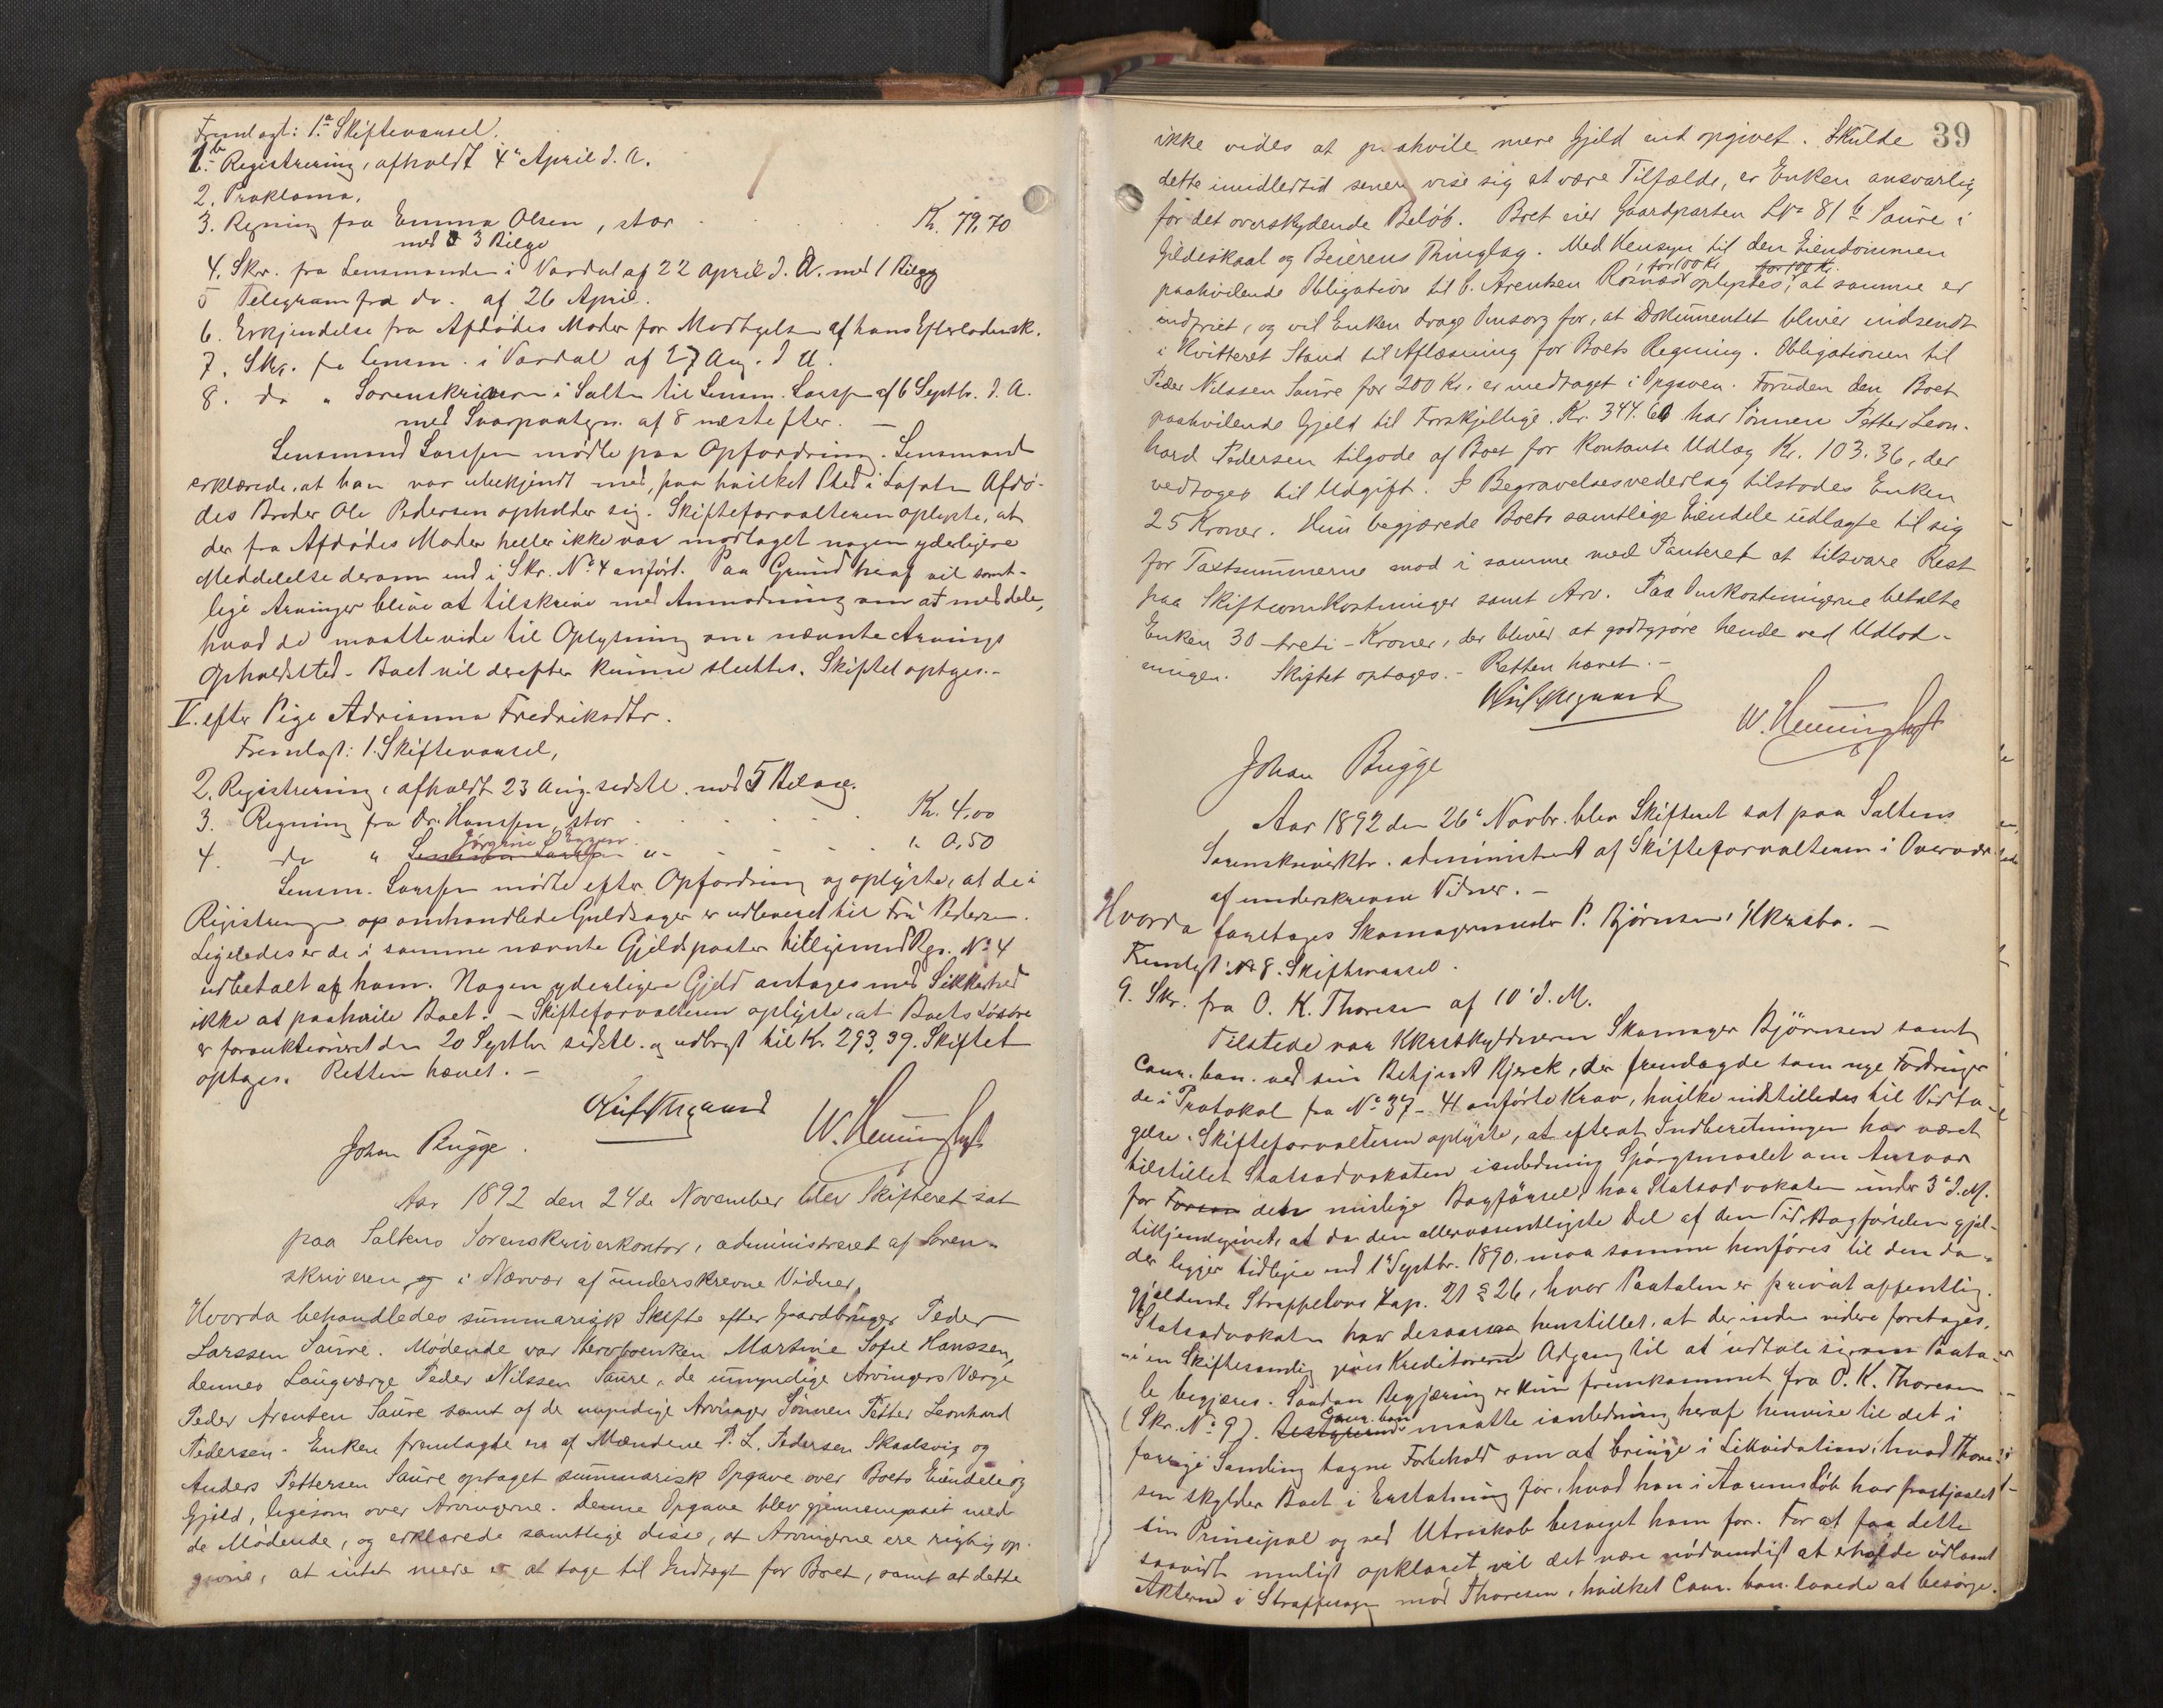 Fremlagt: 1.a Skiftevausel.
1b. Registrering, afholdt 4de April d. A.
2. Proklama.
3. Regning fra Emma Olsen, stor . . . Kr. 79,70
med 3 Bilage
4. Skr. fra Lensmanden i Vardal af 22 April d. A. med 1 Bilag
5 Telegram fra do. af 26 April.
6. Erkjendelse fra Afdødes Moder for Modtagelsen af hans Efterladensk.
7. Skr. fra Lensm. i Vardal af 27 Aug. d. A.
8. do " Sorenskriveren i Salten til Lensm. Larssen af 6 Septbr. d. A.
med Svarpaategn. af 8 næstefter. —
Lensmand Larssen mødte paa Opfordring. Lensmand
erklærede, at han var ubekjendt med, paa hvilket Sted i Lofoten Afdø-
des Broder Ole Pedersen opholder sig. Skifteforvalteren oplyste, at
der fra Afdødes Moder heller ikke var modtaget nogen yderligere
Meddelelse derom end i Skr. No 4 anført. Paa Grund heraf vil samt-
lige Arvinger blive at tilskrive med Anmodning om at meddele,
hvad de maatte vide til Oplysning om nævnte Arvings
Opholdssted. Boet vil derefter kunne sluttes. Skiftet optages.-
V. efter Pige Adrianna Fredriksdtr.
Fremlagt: 1. Skiftevausel,
2. Registrering, afholdt 23 Aug. sidstl. med 5 Bilage.
3. Regning fra Dr. Hanssen, stor . . . . . Kr. 4,00
Jørgine
4. do " Lensmand Larssen " - - - - " 0,50
Lensm. Larssen mødte efter Opfordring og oplyste, at de i
Registreringen omhandlede Guldsager er udleveret til Fru Pedersen.
Ligeledes er de i samme nævnte Gjeldsposter tilligemed Rgn. No 4
udbetalt af ham. Nogen yderligere Gjeld antages med Sikkerhed
ikke at paahvile Boet. – Skifteforvalteren oplyste, at Boets Løsøre
er forauktioneret den 20 Septbr. sidstl. og udbragt til Kr. 293,39. Skiftet
optages. Retten hævet. —
W. Henningsen
Johan Bugge.
Aar 1892 den 24de November blev Skifteret sat
paa Saltens Sorenskriverkontor, administreret af Soren-
skriveren, og i Nærvær af underskrevne Vidner,
Hvorda behandledes summarisk Skifte efter Gaardbruger Peder
Larssen Saure. Mødende var Stervboenken Martine Sofie Hanssen,
dennes Laugværge Peder Nilssen Saure, de umyndige Arvingers Værge
Peder Arentsen Saure samt af de myndige Arvinger Sønnen Petter Leonhard
Pedersen. Enken fremlagde en af Mændene P. L. Pedersen Skaalsvig og
Anders Pettersen Saure optaget summarisk Opgave over Boets Eiendele og
Gjeld, ligesom over Arvingerne. Denne Opgave blev gjennemgaaet med
de Mødende, og erklærede samtlige disse, at Arvingerne ere rigtig op-
givne, at intet mere er at tage til Indtægt for Boet, samt at dette
39
ikke vides at paahvile mere Gjeld end opgivet. Skulde
dette imidlertid senere vise sig at være Tilfælde, er Enken ansvarlig
for det overskydende Beløb. Boet eier Gaardparten Lno 81 b Saure i
Gildeskaal og Beierens Thinglag. Med Hensyn til den Eiendommen
for 100 Kr. for 100 Kr.
paahvilende Obligation til C. Arentsen Rosnæs oplystes, at samme er
indfriet, og vil Enken drage Omsorg for, at Dokumentet bliver indsendt
i kvitteret Stand til Aflæsning for Boets Regning. Obligationen til
Peder Nilssen Saure for 200 Kr. er medtaget i Opgaven. Foruden den Boet
paahvilende Gjeld til Forskjellige Kr. 344.60 har Sønnen Petter Leon-
hard Pedersen tilgode af Boet for kontante Udlæg Kr. 103.36, der
vedtoges til Udgift. I Begravelsesvederlag tilstodes Enken
25 Kroner. Hun begjærede Boets samtlige Eiendele udlagte til sig
for Taxtsummerne mod i samme med Panteret at tilsvare Rest
paa Skifteomkostninger samt Arv. Paa Omkostningerne betalte
Enken 30 – treti – Kroner, der bliver at godtgjøre hende ved Udlod-
ningen. Skiftet optages. – Retten hævet. –
W. Henningsen
Johan Bugge
Aar 1892 den 26de Novbr. blev Skifteret sat paa Saltens
Sorenskriverktr. administreret af Skifteforvalteren i Overvær
af underskrevne Vidner. –
Hvorda foretages Skomagermester P. Bjørnsens Kkursbo. –
Fremlagt: No 8. Skiftevausel.
9. Skr. fra O. K. Thoresen af 10de d. M.
Tilstede var Kkursskyldneren Skomager Bjørnsen samt
Cour. bon. ved sin Betjent Bjerck, der fremlagde som nye Fordringer
de i Protokol fra No 37 – 41 anførte Krav, hvilke indstilledes til Vedta-
gelse. Skifteforvalteren oplyste, at efterat Indberetningen har været
tilstillet Statsadvokaten i anledning Spørgsmaalet om Ansvar
for den mislige Bogførsel, har Statsadvokaten under 3de d. M.
tilkjendegivet, at da den allervæsentligste Del af den Tid Bogførselen gjæl-
der ligger tidligere end 1ste Septbr. 1890, maa samme henføres til den da-
gjældende Straffelovs Kap. 21 § 26, hvor Paatalen er privat offentlig.
Statsadvokaten har desaarsag henstillet, at der inden videre foretages,
i en Skiftesamling gives Kreditorerne Adgang til at udtale sig om Paata-
le begjæres. Saadan Begjæring er kun fremkommet fra O. K. Thoresen
Cour. bon
(Skr. No 9). Bestyreren maatte i anledning heraf henvise til det i
forrige Samling tagne Forbehold om at bringe i Likvidation, hvad Thore-
sen skylder Boet i Erstatning for, hvad han i Aarenes Løb har frastjaalet
sin Principal og ved Utroskab besveget ham for. For at faa dette
saavidt muligt opklaret, vil det være nødvendigt at erholde udlaant
Akterne i Straffesagen mod Thoresen, hvilket Cour. bon. lovede at besørge.